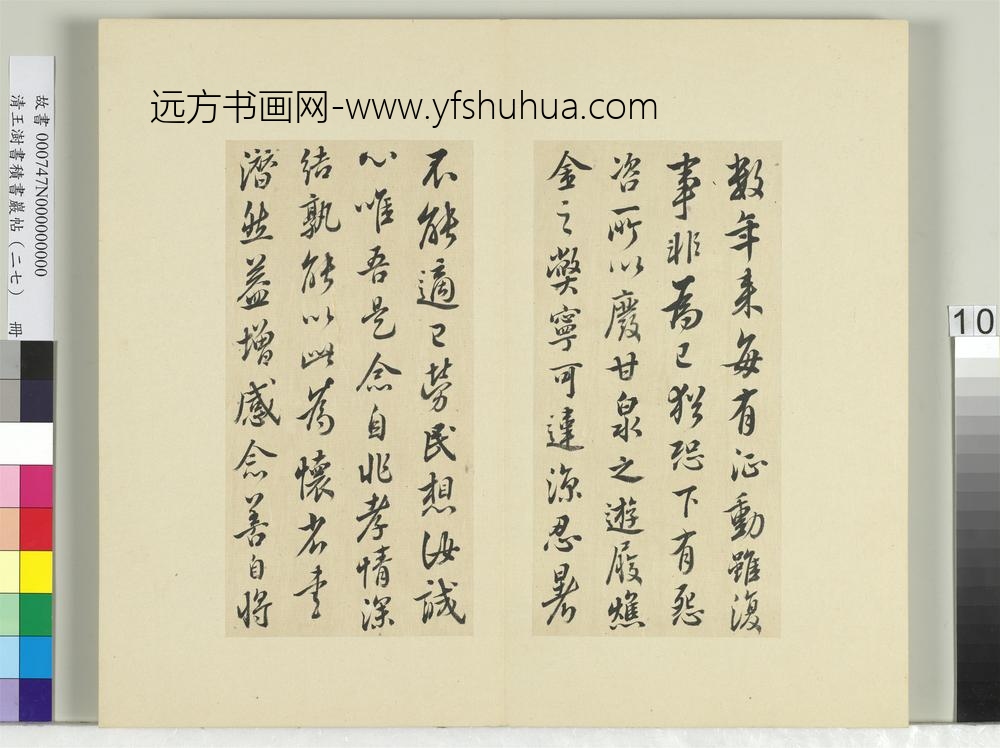 远方书画网-www.yfshuhua.com
數年来每有征動雖復
事非為己猶恐下有怨
咨所以廢甘泉之遊履燋
金之獘寧可違涼忍暑
不能適己勞民想汝誠
心唯吾是念自非孝情深
結孰能以此為懷省書
潛然益增感念善自將
故書 000747N000000000
清王澍書積書巖帖（二七） 冊
10